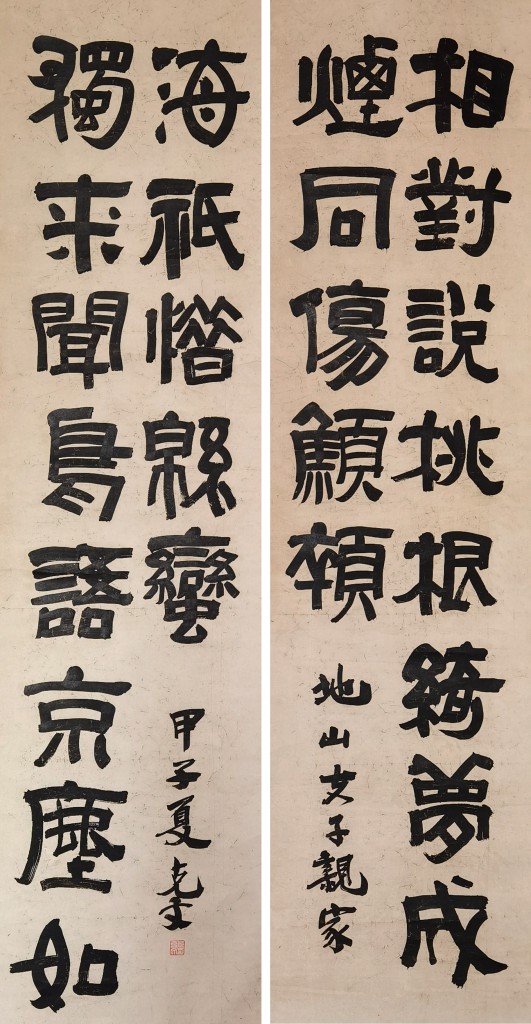 相對說桃根綺夢成
煙同傷顦顇
地山夫子親家
獨來聞鳥語京塵如
海祇憯緜蠻
甲子夏克文